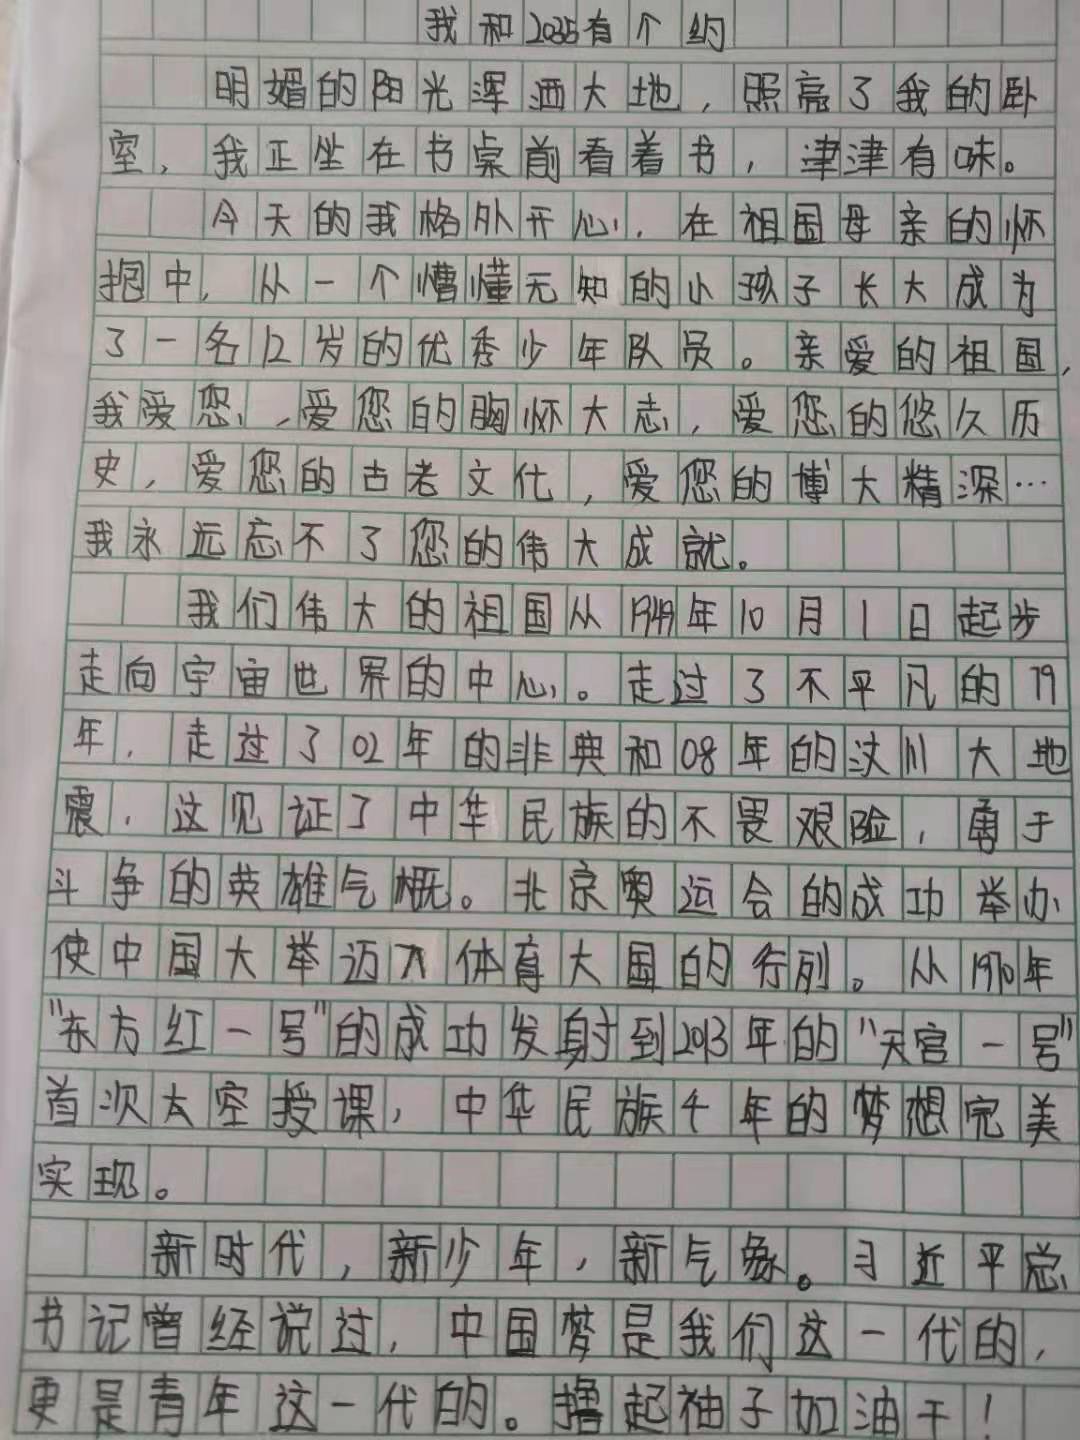 我和2035有个约
明媚的阳光浑洒大地，照亮了我的卧
室，我正坐在书桌前看着书，津津有味。
今天的我格外开心，在祖国母亲的怀
抱中，从一个懵懂无知的小孩子长大成为
了一名12岁的优秀少年队员。亲爱的祖国，
我爱您，爱您的胸怀大志，爱您的悠久历
史，爱您的古老文化，爱您的博大精深…
我永远忘不了您的伟大成就。
我们伟大的祖国从1949年10月1日起步
走向宇宙世界的中心。走过了不平凡的79
年，走过了02年的非典和08年的汶川大地
震，这见证了中华民族的不畏艰险，勇于
斗争的英雄气概。北京奥运会的成功举办
使中国大举迈入体育大国的行列。从1970年
"东方红一号"的成功发射到2013年的"天宫一号"
首次太空授课，中华民族千年的梦想完美
实现。
新时代，新少年，新气象。习近平总
书记曾经说过，中国梦是我们这一代的，
更是青年这一代的。撸起袖子加油干！